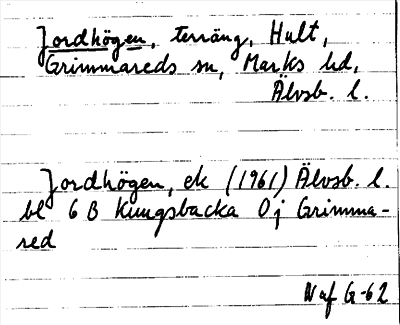 Jordhögen, terräng, Hult,
Grimmareds sn, Marks hd,
Älvsb. l.
Jordhögen, ek (1961) Älvsb. l.
bl 6 B Kungsbacka 0j Grimma-
red
Waf G-62